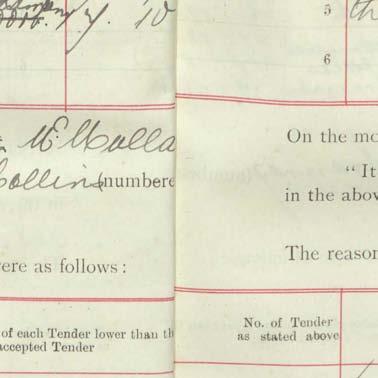 10
5 th
6
McColla
Collins (numbere
ere as follows :
of each Tender lower than th
accepted Tender
On the mo
" It
in the abov
The reason
No. of Tender
as stated above